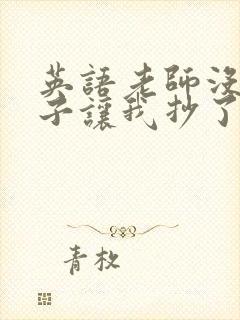 英語老師沒
子讓我抄了
青枚